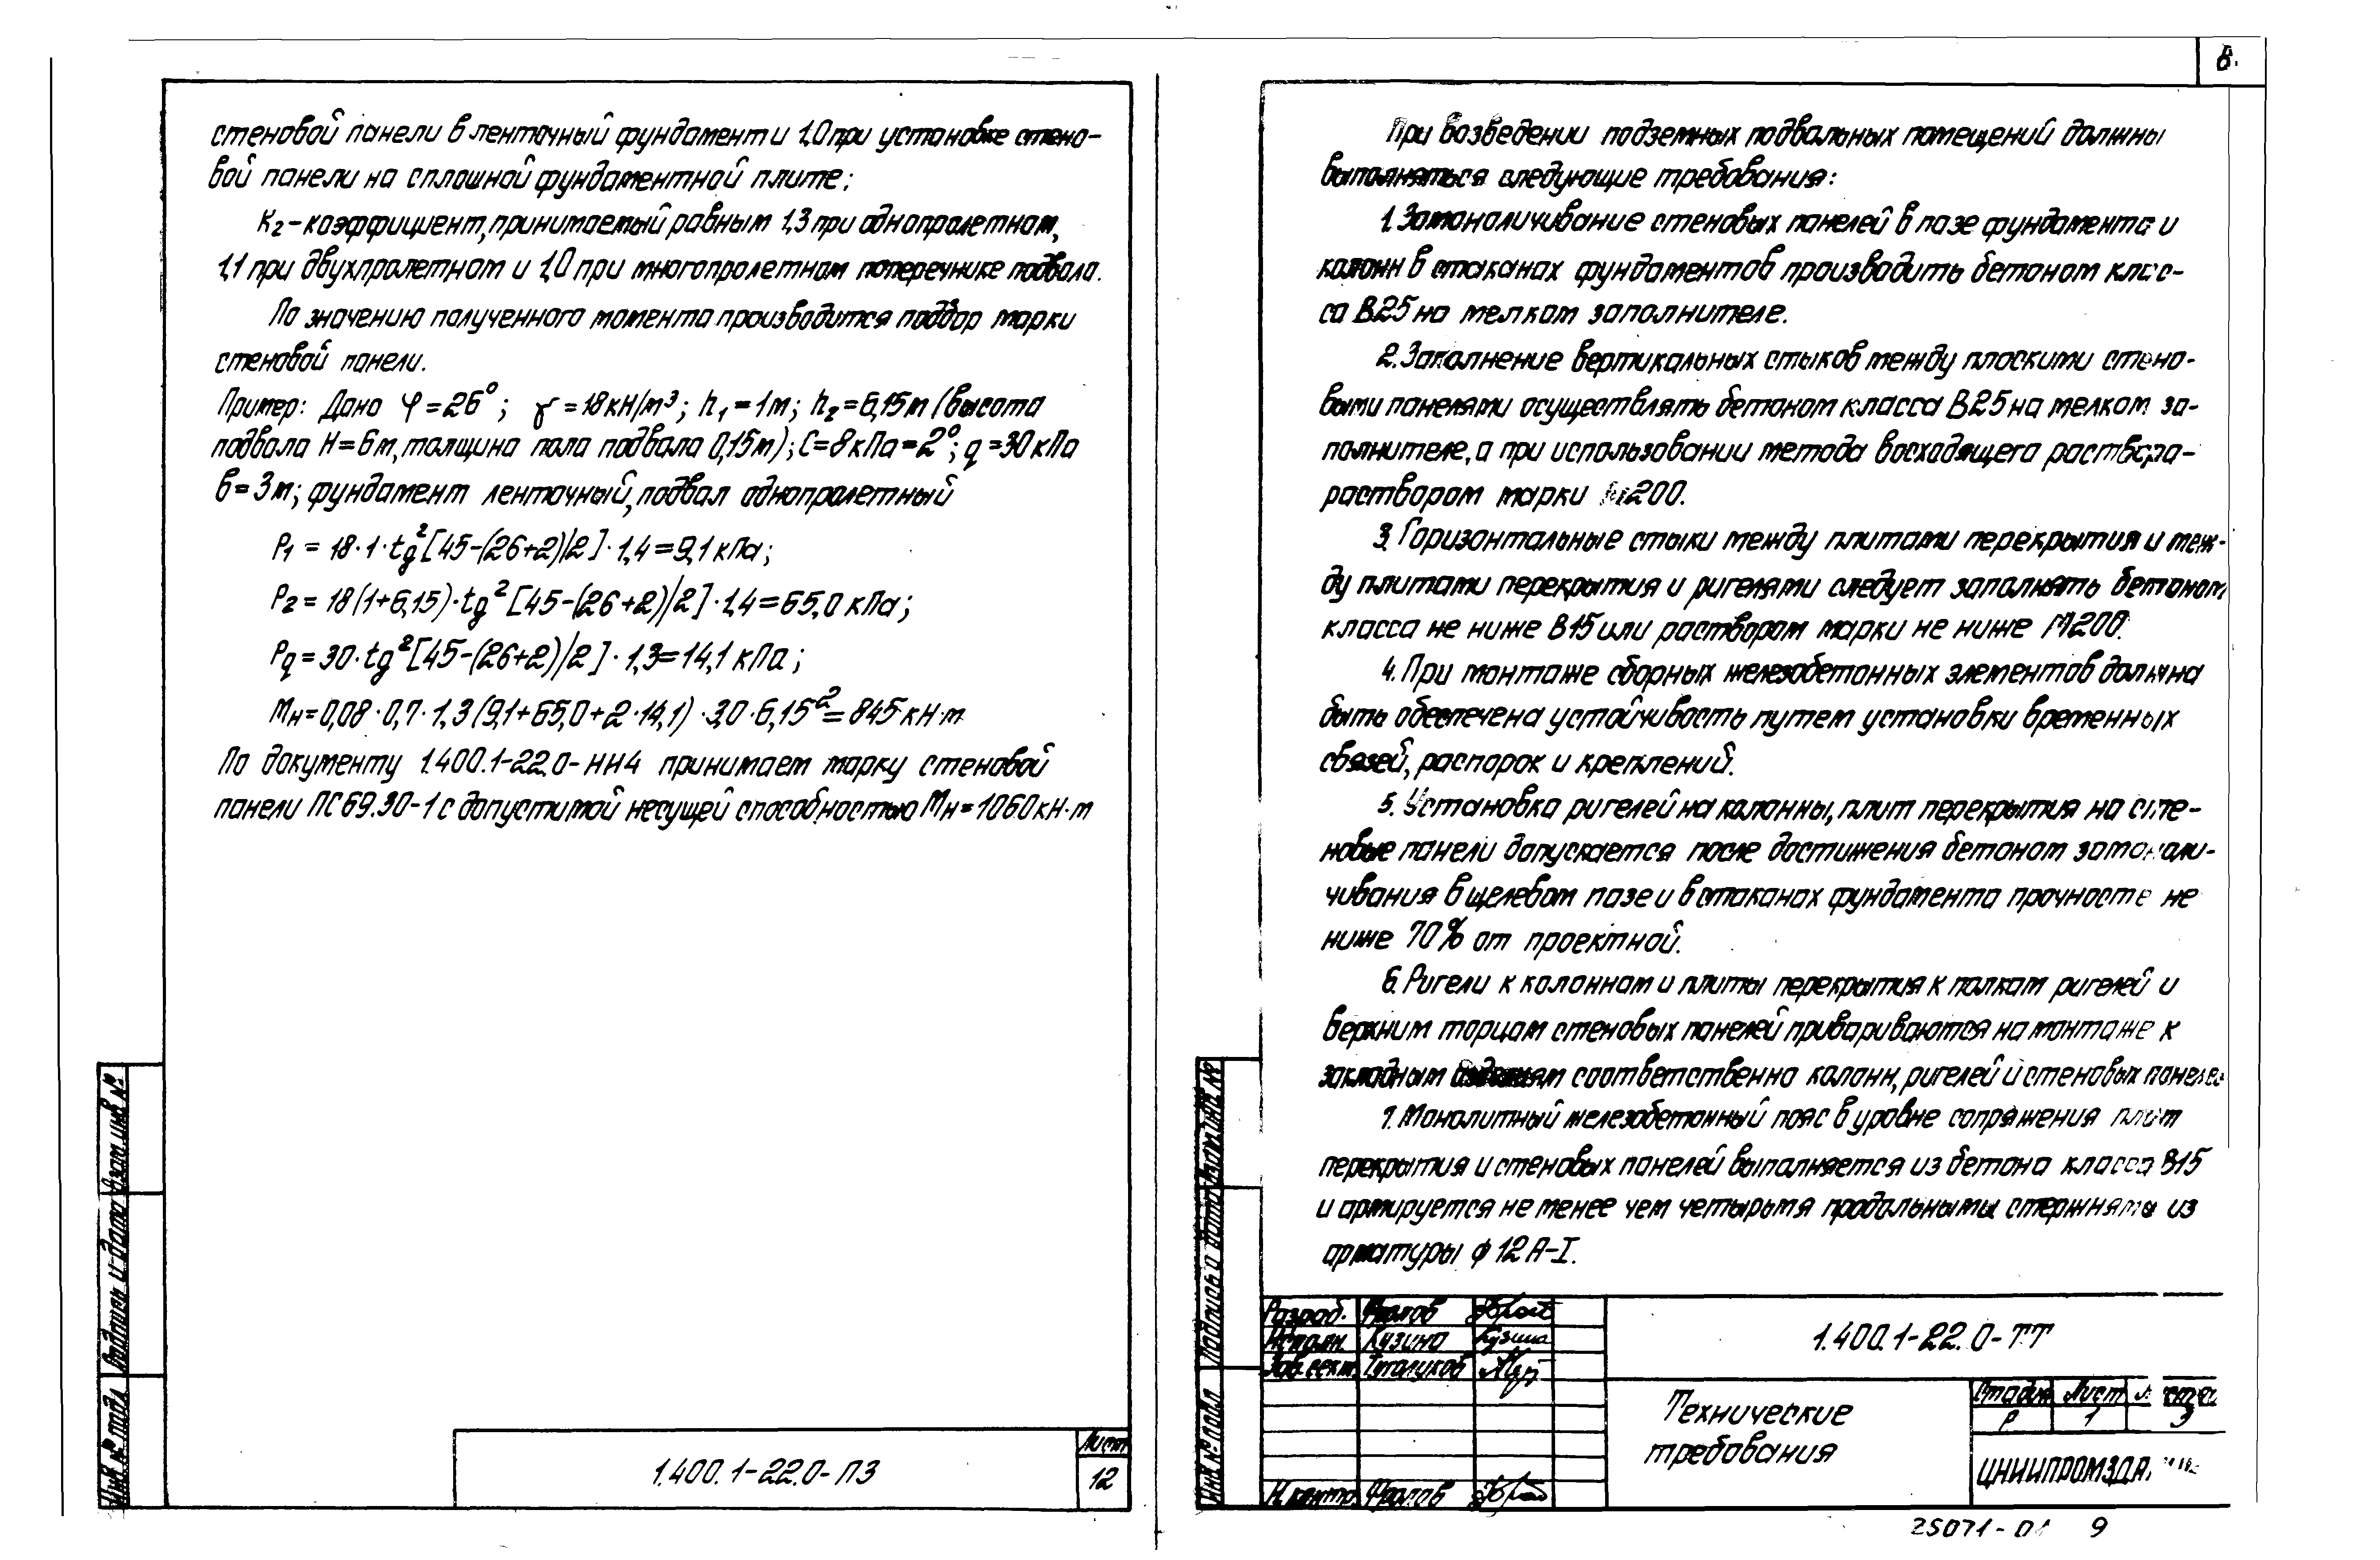 8.
стеновой панели в ленточный фундамент и 1,0 при установке стено-
вой панели на сплошной фундаментной плите;
К₂ – коэффициент, принимаемый равным 1,3 при однопролетном,
1,1 при двухпролетном и 1,0 при многопролетном поперечнике подвала.
По значению полученного момента производится подбор марки
стеновой панели.
Пример: Дано φ = 26°; γ = 18 кН/м³; h₁ = 1м; h₂ = 6,15м (высота
подвала H = 6м, толщина пола подвала 0,15м); C = 8 кПа = 2°; q = 30 кПа
в = 3м; фундамент ленточный, подвал однопролетный
P₁ = 18·1·tg²[45-(26+2)/2]·1,4 = 9,1 кПа;
P₂ = 18(1+6,15)·tg²[45-(26+2)/2]·1,4 = 65,0 кПа;
Pq = 30·tg²[45-(26+2)/2]·1,3 = 14,1 кПа;
Mн = 0,08·0,7·1,3(9,1+65,0+2·14,1)·3,0·6,15² = 845 кН·м
По документу 1.400.1-22.0-НН4 принимаем марку стеновой
панели ПС69.30-1 с допустимой несущей способностью Мн = 1060 кН·м
Взам. инв. №
Подпись и дата
Инв. № подл.
1.400.1-22.0-ПЗ
Лист
12
При возведении подземных подвальных помещений должны
выполняться следующие требования:
1. Замоноличивание стеновых панелей в пазе фундамента и
колонн в стаканах фундаментов производить бетоном клас-
са В25 на мелком заполнителе.
2. Заполнение вертикальных стыков между плоскими стено-
выми панелями осуществлять бетоном класса В25 на мелком за-
полнителе, а при использовании метода восходящего раствора-
раствором марки М200.
3. Горизонтальные стыки между плитами перекрытия и меж-
ду плитами перекрытия и ригелями следует заполнять бетоном
класса не ниже В15 или раствором марки не ниже М200.
4. При монтаже сборных железобетонных элементов должна
быть обеспечена устойчивость путем установки временных
связей, распорок и креплений.
5. Установка ригелей на колонны, плит перекрытия на сте-
новые панели допускается после достижения бетоном замоноли-
чивания в щелевом пазе и в стаканах фундамента прочности не
ниже 70% от проектной.
6. Ригели к колоннам и плиты перекрытия к полкам ригелей и
верхним торцам стеновых панелей привариваются на монтаже к
закладным изделиям соответственно колонн, ригелей и стеновых панелей
7. Монолитный железобетонный пояс в уровне сопряжения плит
перекрытия и стеновых панелей выполняется из бетона класса В15
и армируется не менее чем четырьмя продольными стержнями из
арматуры ф 12 А-I.
Взам. инв. №
Подпись и дата
Инв. № подл.
Разраб. Фролов
Исполн. Кузина
Зав. сект.
Н. контр. Фролов
1.400.1-22.0-ТТ
Технические
требования
Стадия Лист Листов
Р 1 3
ЦНИИПРОМЗДАНИЙ
25071-01 9